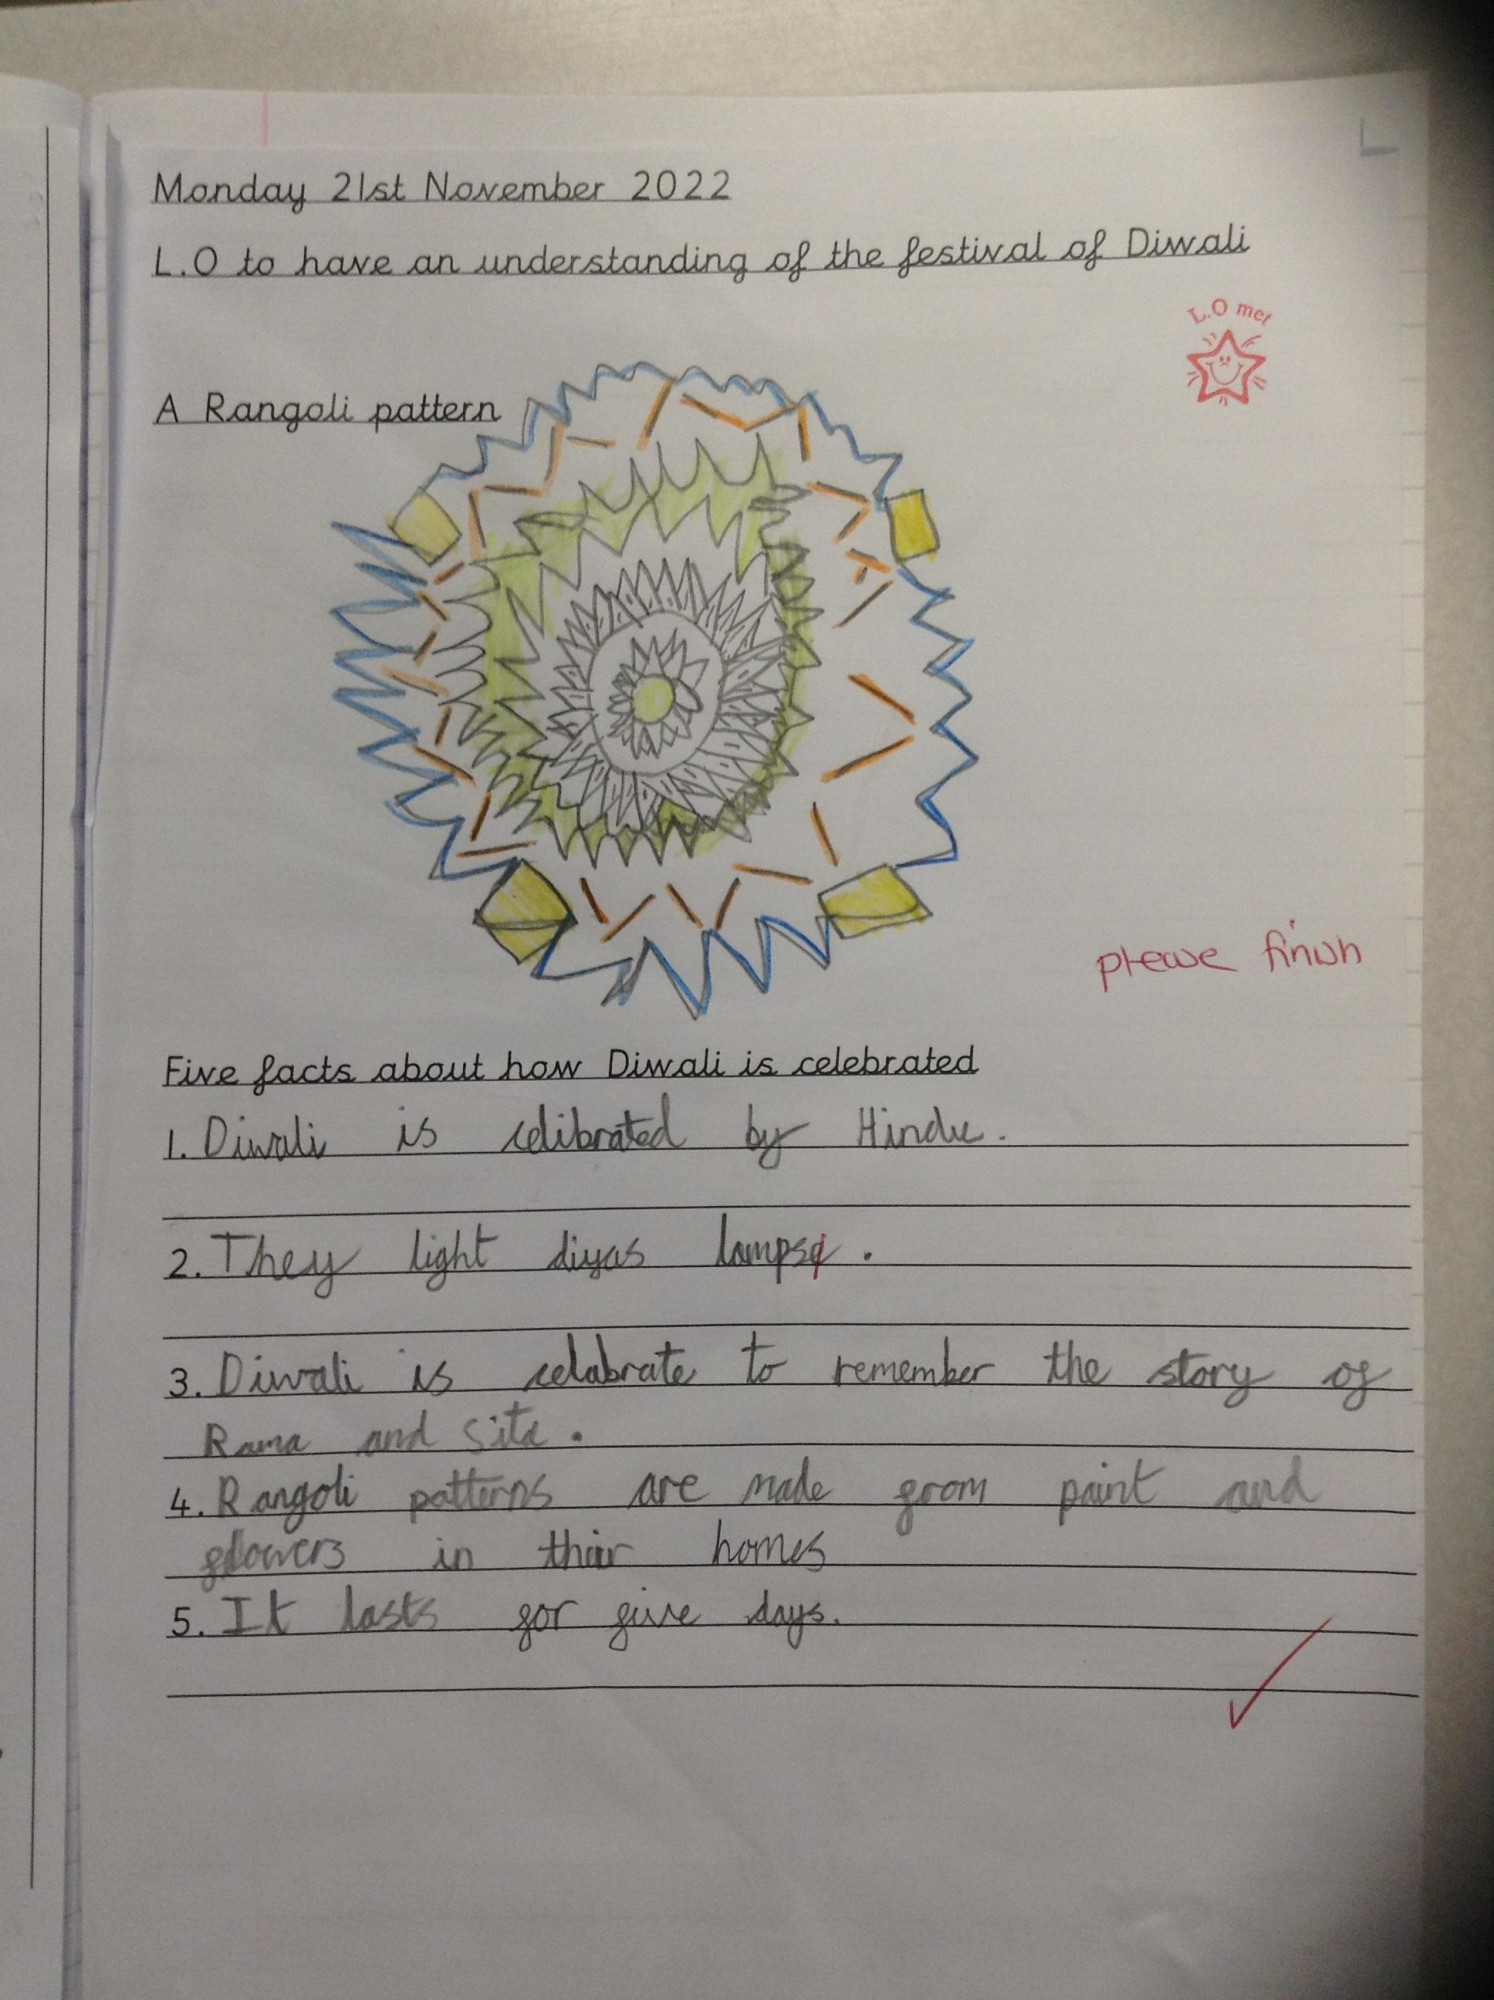 Monday 21st November 2022
L.O to have an understanding of the festival of Diwali
L.O met
A Rangoli pattern
please finish
Five facts about how Diwali is celebrated
1. Diwali is celibrated by Hindu.
2. They light diyas lamps.
3. Diwali is celabrate to remember the story of
Rama and Sita.
4. Rangoli patterns are made from paint and
flowers in their homes
5. It lasts for five days.